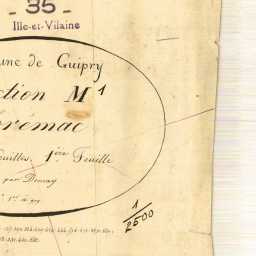 - 35 -
Ille-et-Vilaine
une de Guipry
ction M¹
rémac
uilles, 1ère Feuille
par Demay
1/2500